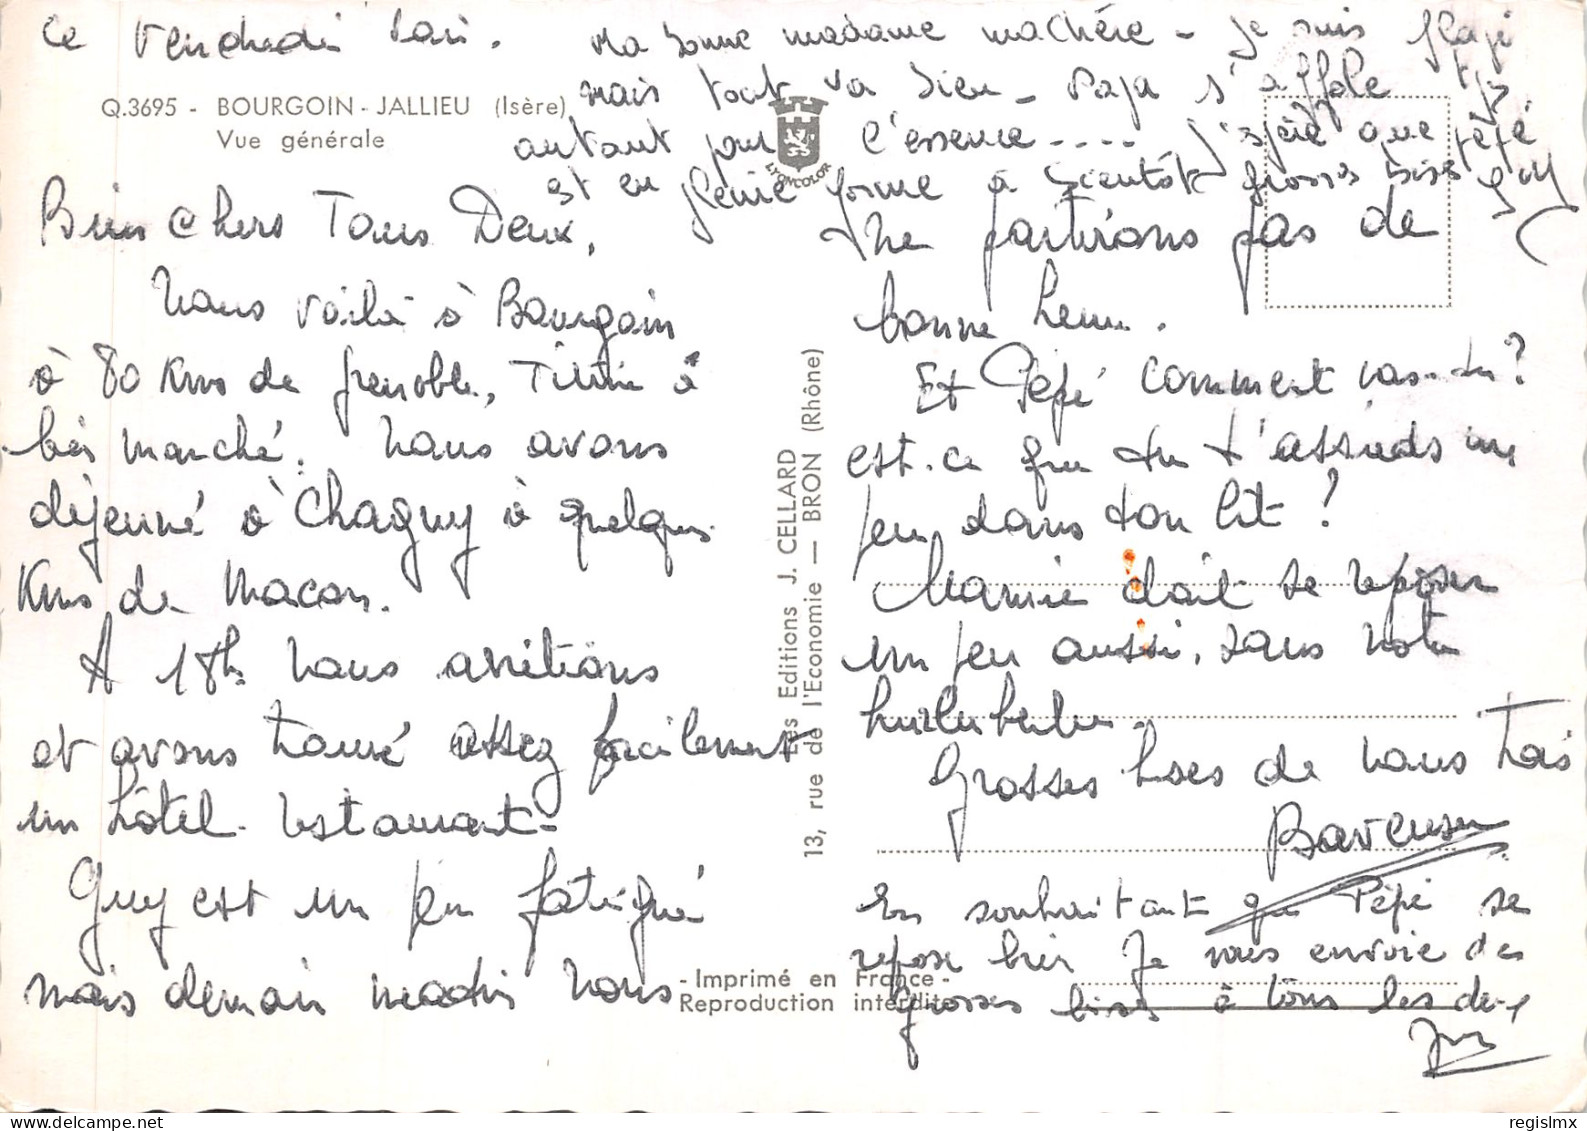 ce vendredi soir.
Q.3695 - BOURGOIN - JALLIEU (Isère)
Vue générale
Bien chers Tous Deux,
nous voilà à Bourgoin
à 80 Kms de grenoble, Titine a
très marché. nous avons
déjeuné à Chagny à quelques
Kms de Macon.
A 18h nous arrêtions
et avons trouvé assez facilement
un hôtel. restaurant-
Guy est un peu fatigué
mais demain matin nous
ne partirons pas de
bonne heure.
Et Pépé comment vas-tu?
est-ce que tu t'assieds un
peu dans ton lit?
Mamie doit se reposer
un peu aussi, sans notre
hurluberlu.
Grosses bises de nous trois
En souhaitant que Pépé se
repose bien Je vous envoie des
grosses bises à tous les deux
Ma bonne madame machère - je suis
mais tout va bien - Papa s'affole
autant pour l'essence.... J'espère que pépé
est en pleine forme à bientôt grosses bises
LYONCOLOR
Les Editions J. CELLARD
13, rue de l'Economie — BRON (Rhône)
- Imprimé en France -
Reproduction interdite
regislmx